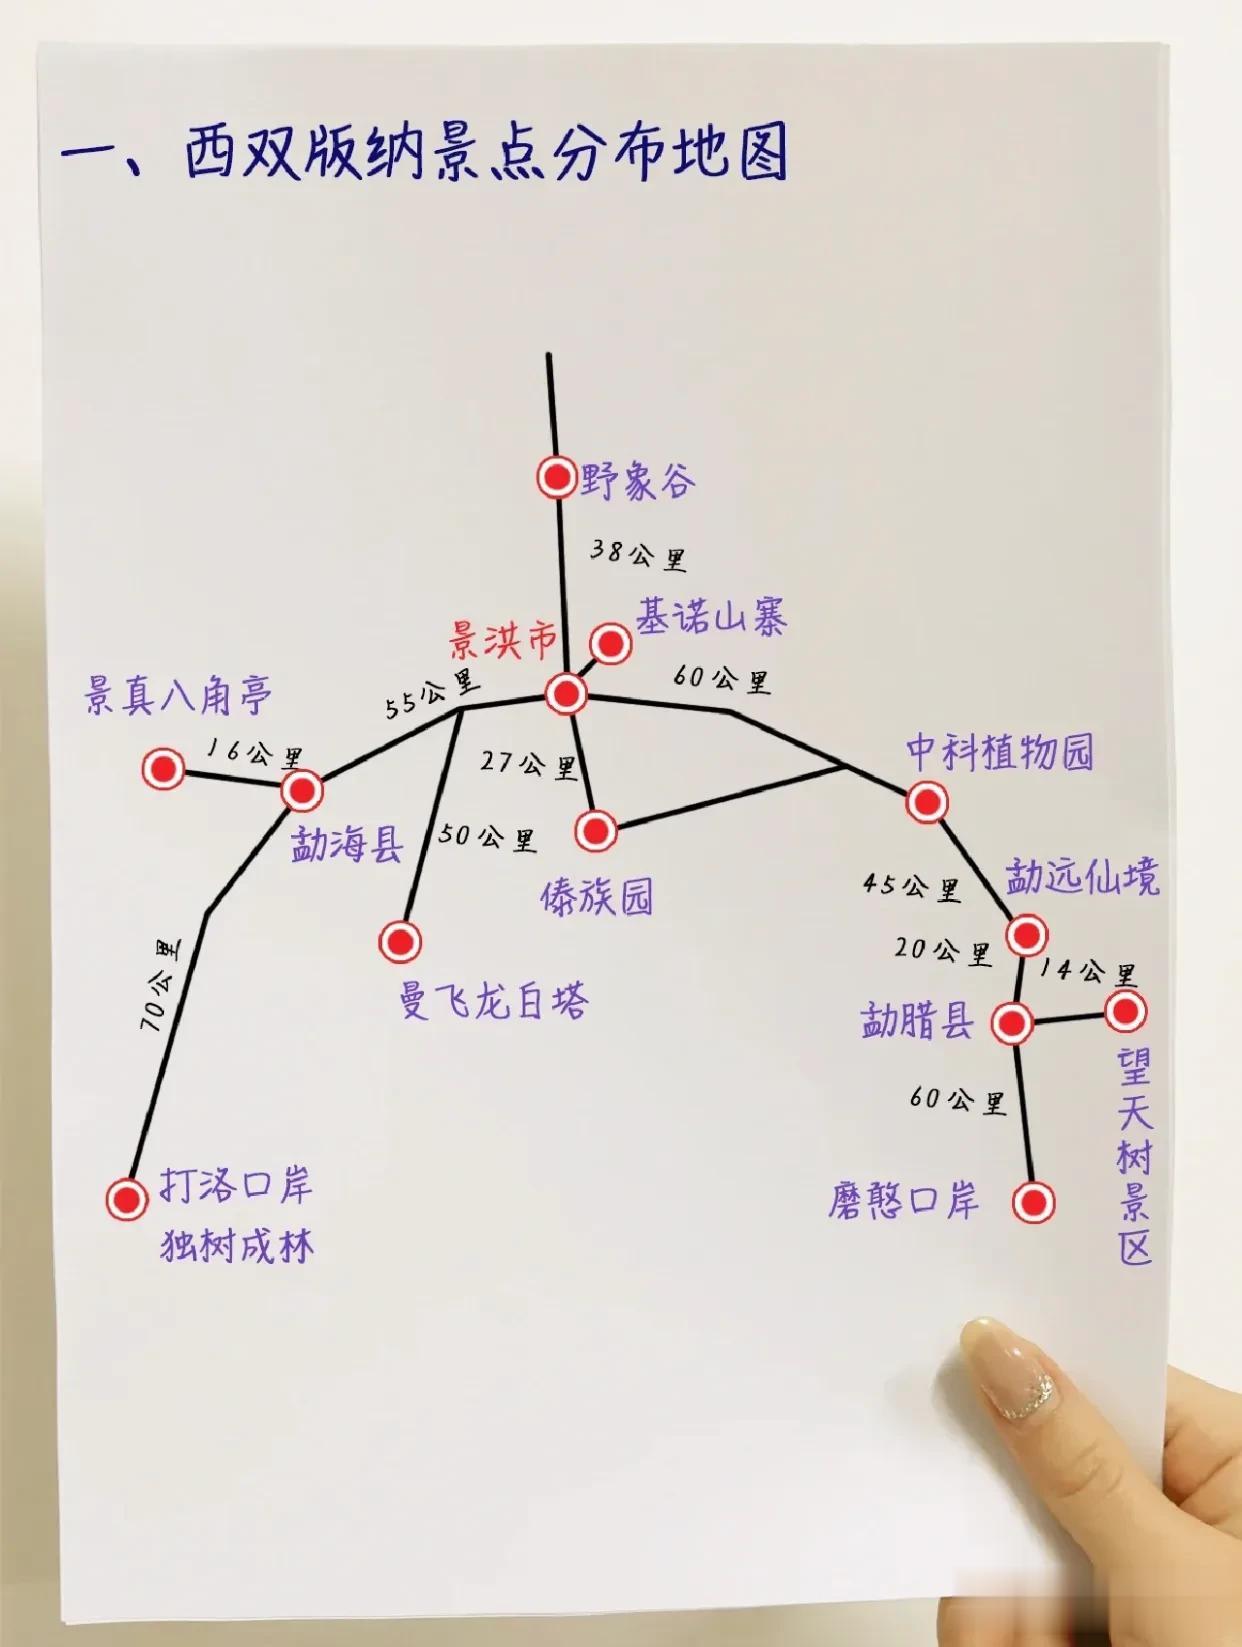 一、西双版纳景点分布地图
野象谷
38公里
基诺山寨
景洪市
60公里
55公里
景真八角亭
16公里
27公里
中科植物园
勐海县
50公里
傣族园
45公里
勐远仙境
20公里
14公里
曼飞龙白塔
70公里
勐腊县
望天树景区
60公里
打洛口岸
独树成林
磨憨口岸